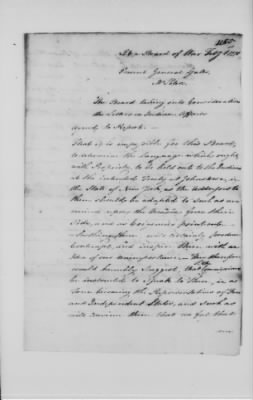 At a Board of War Feby
Present General Gates
Mr Peters
The Board taking into Consideration
the Letters on Indian Affairs
agreed to Report.
That it is impossible for this Board,
to determine the Language which ought
with Propriety to be held out to the Indians
at the intended Treaty at Johnstown, in
the State of New York, as the Address to
them should be adapted to such as
upon the Occasion from their
Side, and as Concerns
will certainly produce
Contempt, and inspire them with an
Idea of our unimportance
would humbly Suggest that Commissioners
be instructed to Speak to them, in a
tone becoming the Representatives of Free
and Independent States, and such as
will convince them that we feel that